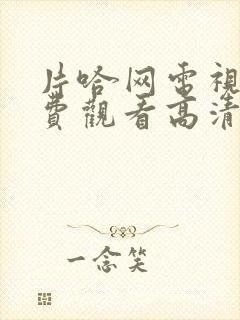 片哈网电視
費觀看高清
一念笑